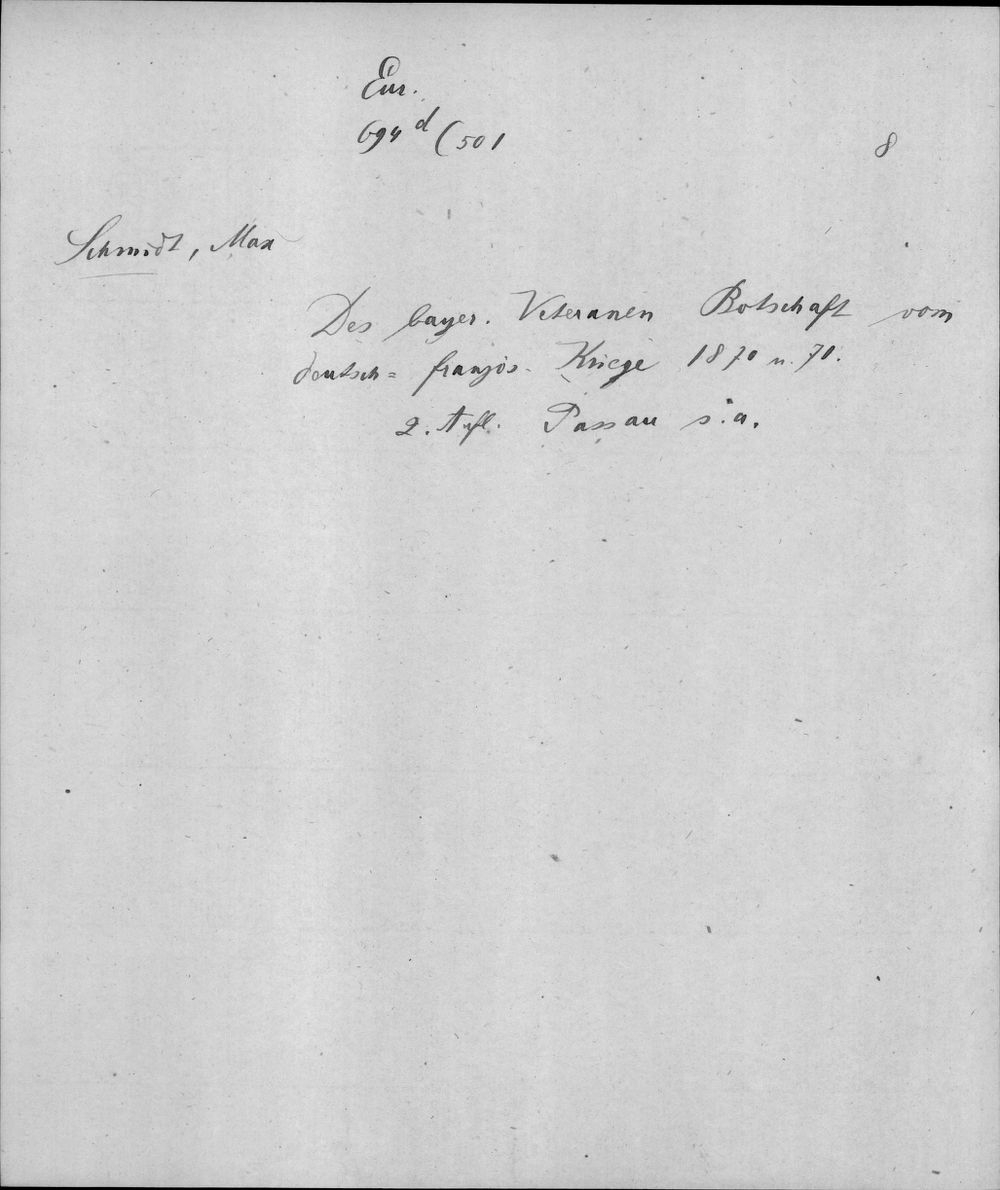 Eur.
694 d (50 1
8
Schmidt, Max
Des bayer. Veteranen Botschaft vom
deutsch= französ. Kriege 1870 u. 71.
2. Aufl. Passau s. a.